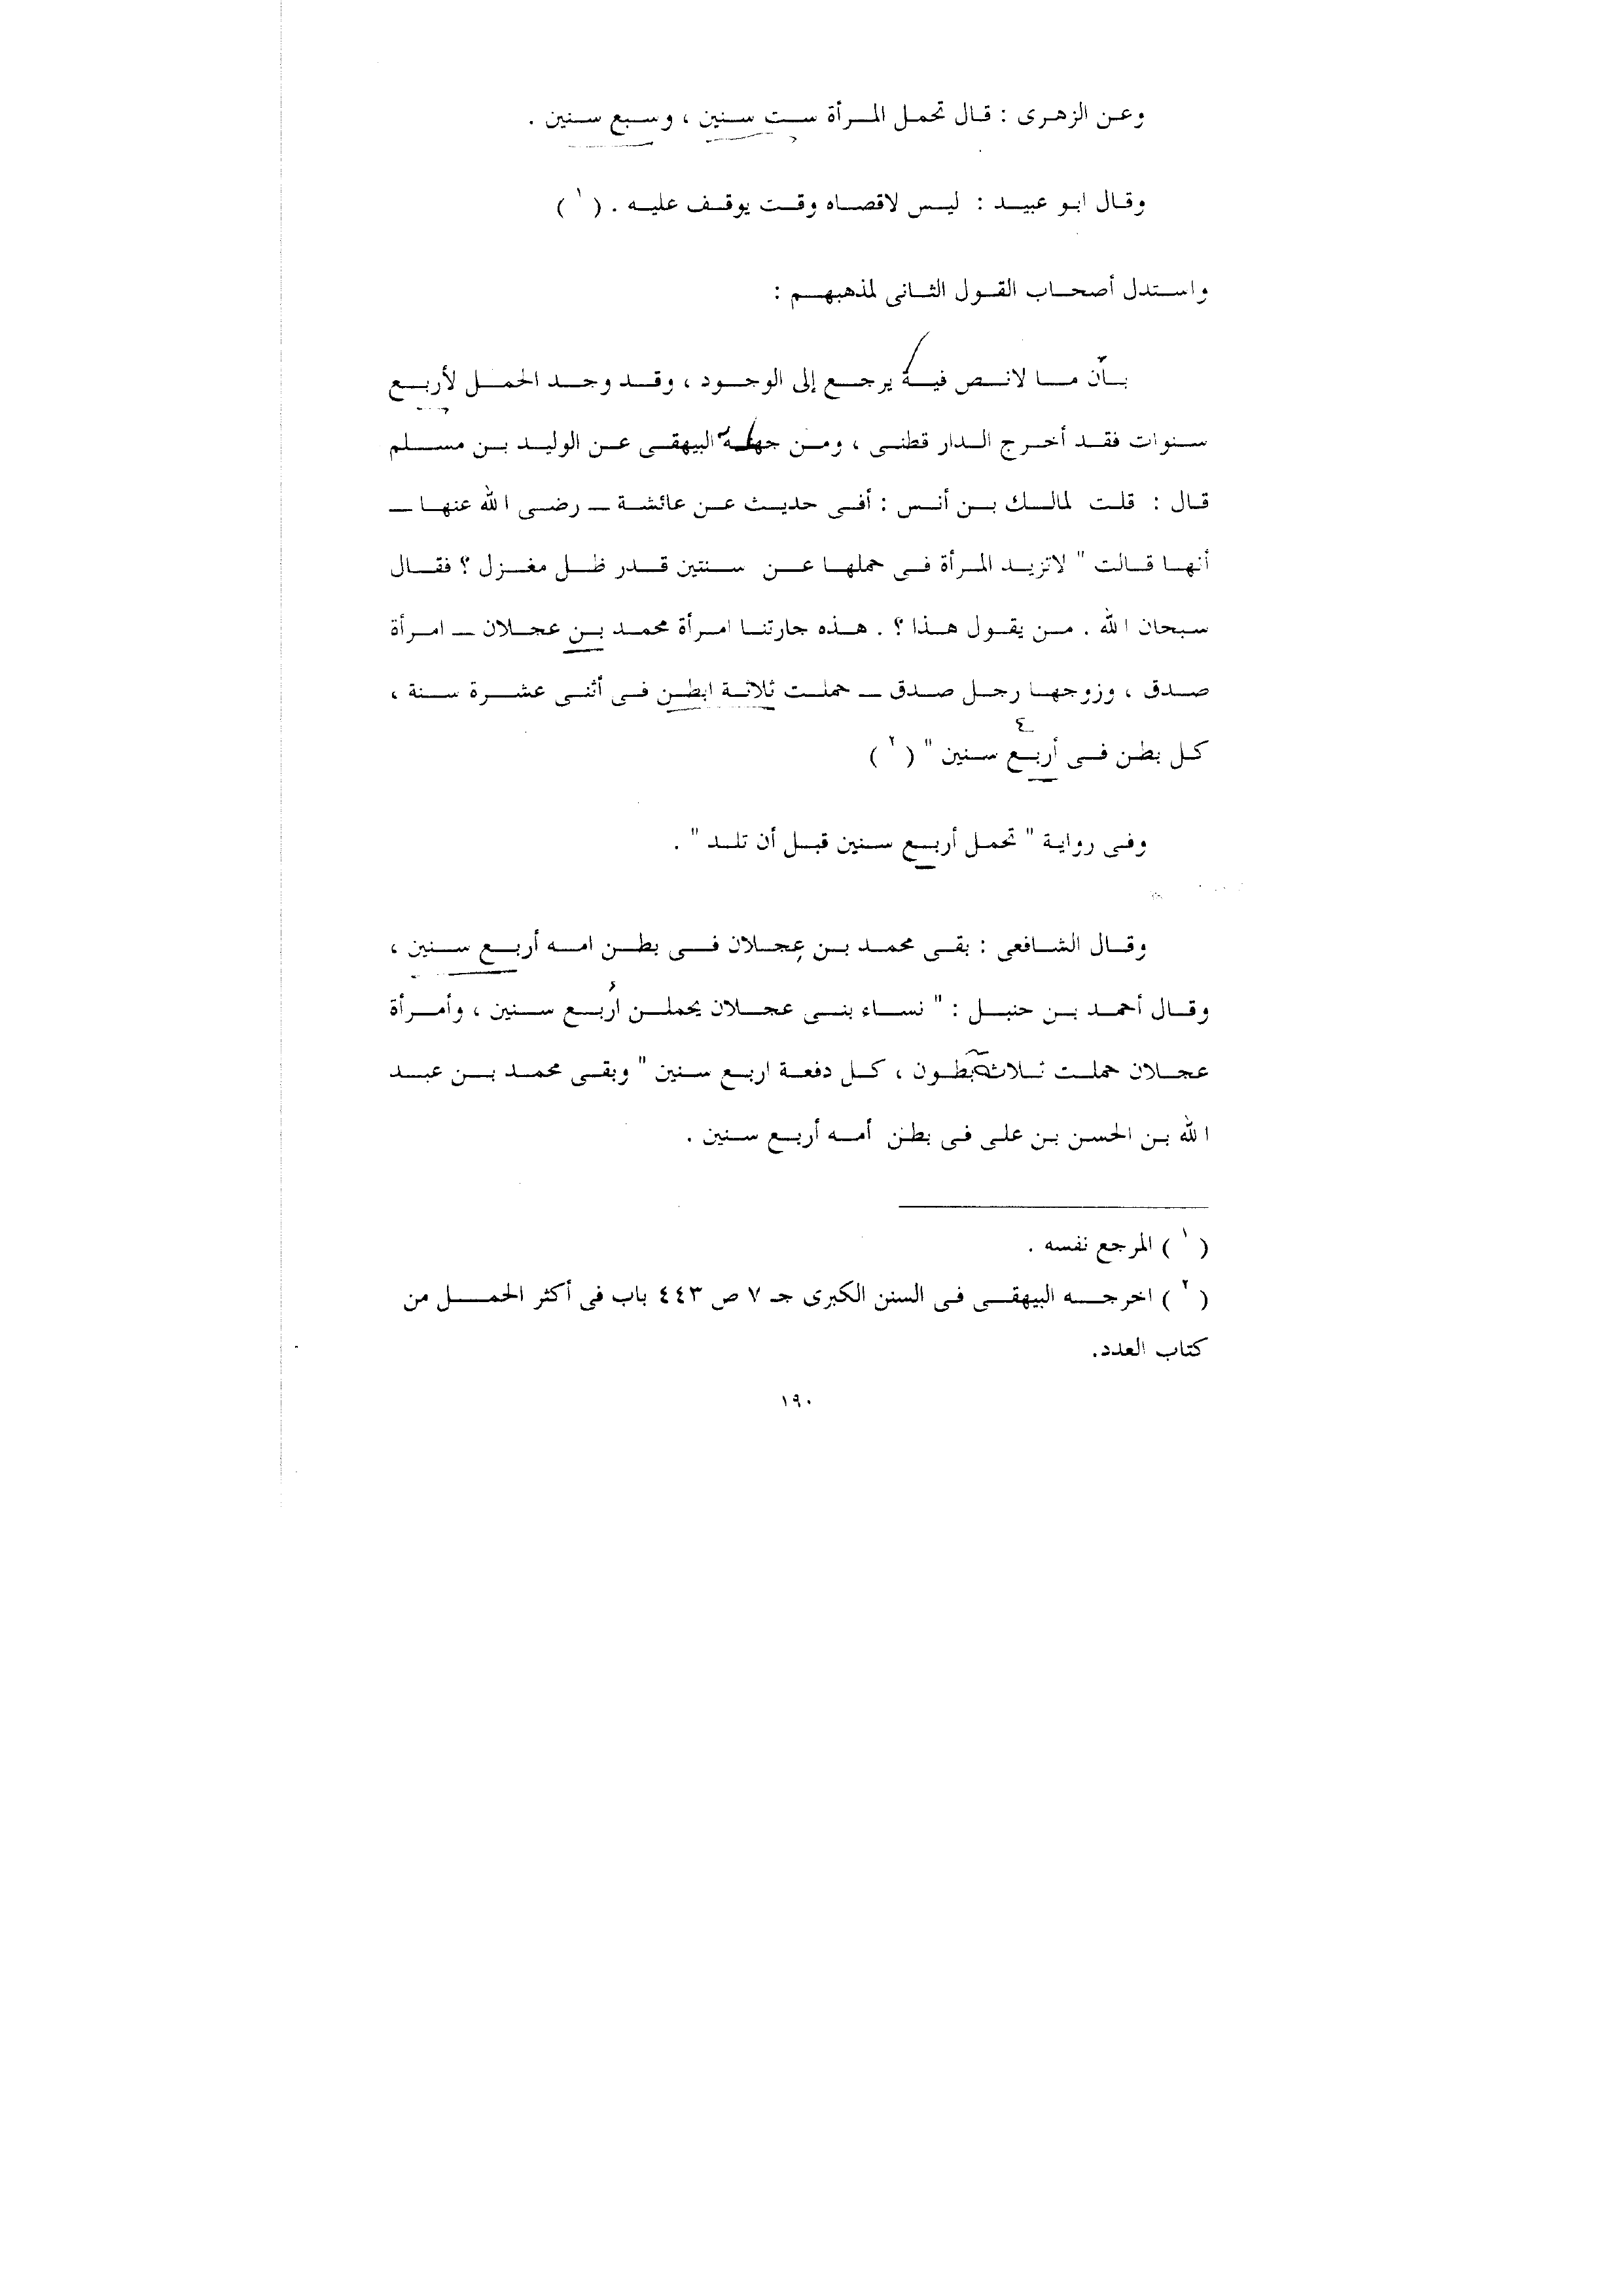 وعن الزهرى : قال تحمل المرأة ست سنين ، وسبع سنين .
وقال ابو عبيد : ليس لاقصاه وقت يوقف عليه . ( ١ )
واستدل أصحاب القول الثانى لمذهبهم :
بأن ما لانص فية يرجع إلى الوجود ، وقد وجد الحمل لأربع
سنوات فقد أخرج الدار قطنى ، ومن جهة البيهقى عن الوليد بن مسلم
قال : قلت لمالك بن أنس : أفى حديث عن عائشة – رضى الله عنها –
أنها قالت " لاتزيد المرأة فى حملها عن سنتين قدر ظل مغزل ؟ فقال
سبحان الله . من يقول هذا ؟ . هذه جارتنا امرأة محمد بن عجلان – امرأة
صدق ، وزوجها رجل صدق – حملت ثلاثة ابطن فى أثنى عشرة سنة ،
٤
كل بطن فى أربع سنين " ( ٢ )
وفى رواية " تحمل أربع سنين قبل أن تلد " .
وقال الشافعى : بقى محمد بن عجلان فى بطن امه أربع سنين ،
وقال أحمد بن حنبل : " نساء بنى عجلان يحملن أربع سنين ، وأمرأة
عجلان حملت ثلاثة بطون ، كل دفعة اربع سنين " وبقى محمد بن عبد
الله بن الحسن بن على فى بطن أمه أربع سنين .
( ١ ) المرجع نفسه .
( ٢ ) اخرجه البيهقى فى السنن الكبرى جـ ٧ ص ٤٤٣ باب فى أكثر الحمل من
كتاب العدد.
١٩٠